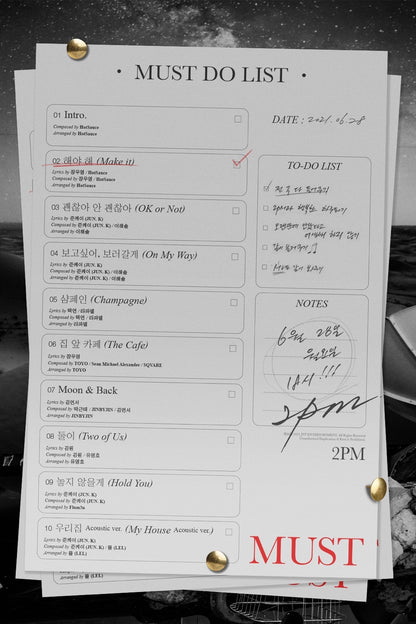 · MUST DO LIST ·
01 Intro.
Composed by HotSauce
02 해야 해 (Make it)
Lyrics by 장우영 / HotSauce
Composed by 장우영 / HotSauce
Arranged by HotSauce
03 괜찮아 안 괜찮아 (OK or Not)
Lyrics by 준케이 (JUN. K)
Composed by 준케이 (JUN. K) / 이해솔
Arranged by 이해솔
04 보고싶어, 보러갈게 (On My Way)
Lyrics by 준케이 (JUN. K)
Composed by 준케이 (JUN. K) / 이해솔
Arranged by 준케이 (JUN. K) / 이해솔
05 샴페인 (Champagne)
Lyrics by 택연 / 라파엘
Composed by 택연 / 라파엘
Arranged by 라파엘
06 집 앞 카페 (The Cafe)
Lyrics by 장우영
Composed by TOYO / Sean Michael Alexander / SQUARE
Arranged by TOYO
07 Moon & Back
Lyrics by 김민서
Composed by 박근태 / JINBYJIN / 김민서
Arranged by JINBYJIN
08 둘이 (Two of Us)
Lyrics by 김원
Composed by 김원 / 유영호
Arranged by 유영호
09 놓지 않을게 (Hold You)
Lyrics by 준케이 (JUN. K)
Composed by 준케이 (JUN. K)
Arranged by
10 우리집 Acoustic ver. (My House Acoustic ver.)
Lyrics by 준케이 (JUN. K)
Composed by 준케이 (JUN. K) / 뜰 (LEL)
Arranged by 뜰 (LEL)
DATE : 2021. 06. 28
TO-DO LIST
NOTES
6월 28일
월요일
!!!
2pm
2PM
MUST